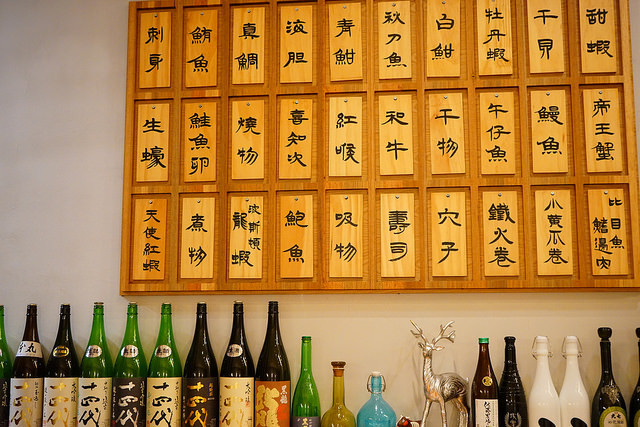 刺身
鮪魚
真鯛
海胆
青魽
秋刀魚
白魽
牡丹蝦
干貝
甜蝦
生蠔
鮭魚卵
燒物
喜知次
紅喉
和牛
干物
午仔魚
鰻魚
帝王蟹
天使紅蝦
煮物
波斯頓
龍蝦
鮑魚
吸物
壽司
穴子
鐵火卷
小黃瓜卷
比目魚
鰭邊肉
十四代
十四代
十四代
十四代
十四代
十四代
十四代